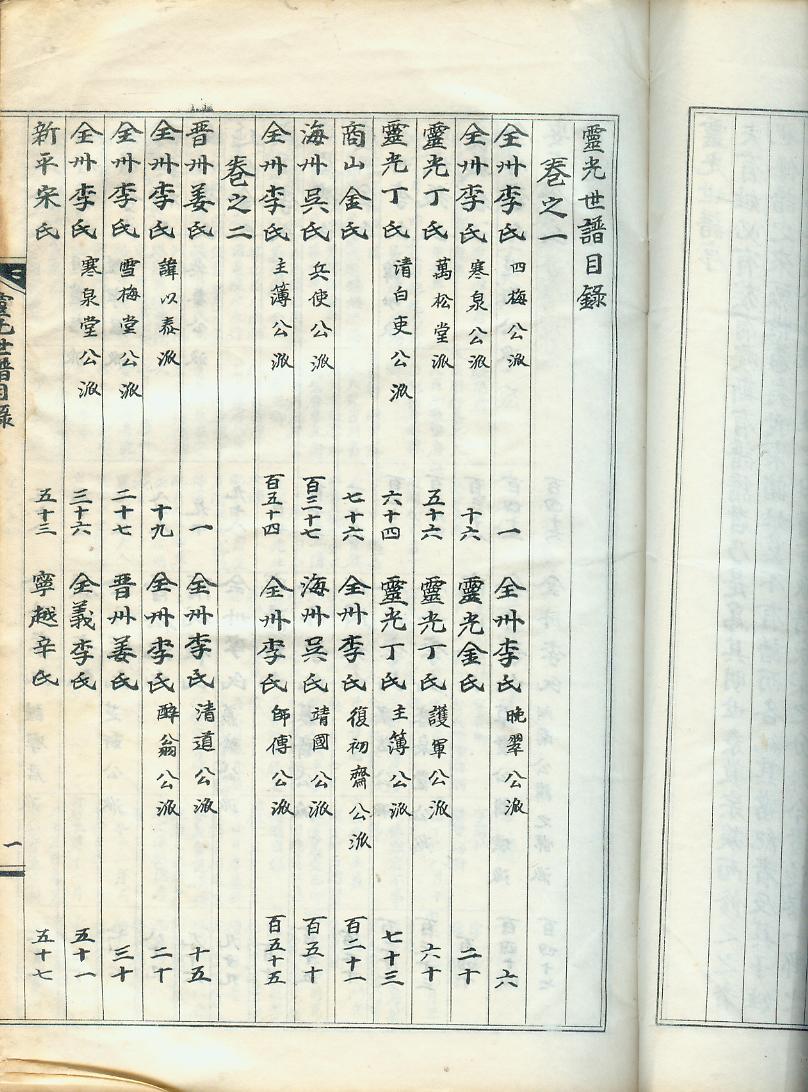 靈光世譜目錄
卷之一
全州李氏 四梅公派 一 全州李氏 晚翠公派 六
全州李氏 寒泉公派 十六 靈光金氏 二十
靈光丁氏 萬松堂派 五十六 靈光丁氏 護軍公派 六十
靈光丁氏 清白吏公派 六十四 靈光丁氏 主簿公派 七十三
商山金氏 七十六 全州李氏 復初齋公派 百二十一
海州吳氏 兵使公派 百三十七 海州吳氏 靖國公派 百五十
全州李氏 主簿公派 百五十四 全州李氏 師傅公派 百五十五
卷之二
晋州姜氏 一 全州李氏 清道公派 十五
全州李氏 諱以泰派 十九 全州李氏 醉翁公派 二十
全州李氏 雪梅堂公派 二十七 晋州姜氏 三十
全州李氏 寒泉堂公派 三十六 全義李氏 五十一
新平宋氏 五十三 寧越辛氏 五十七
靈光世譜目錄 一